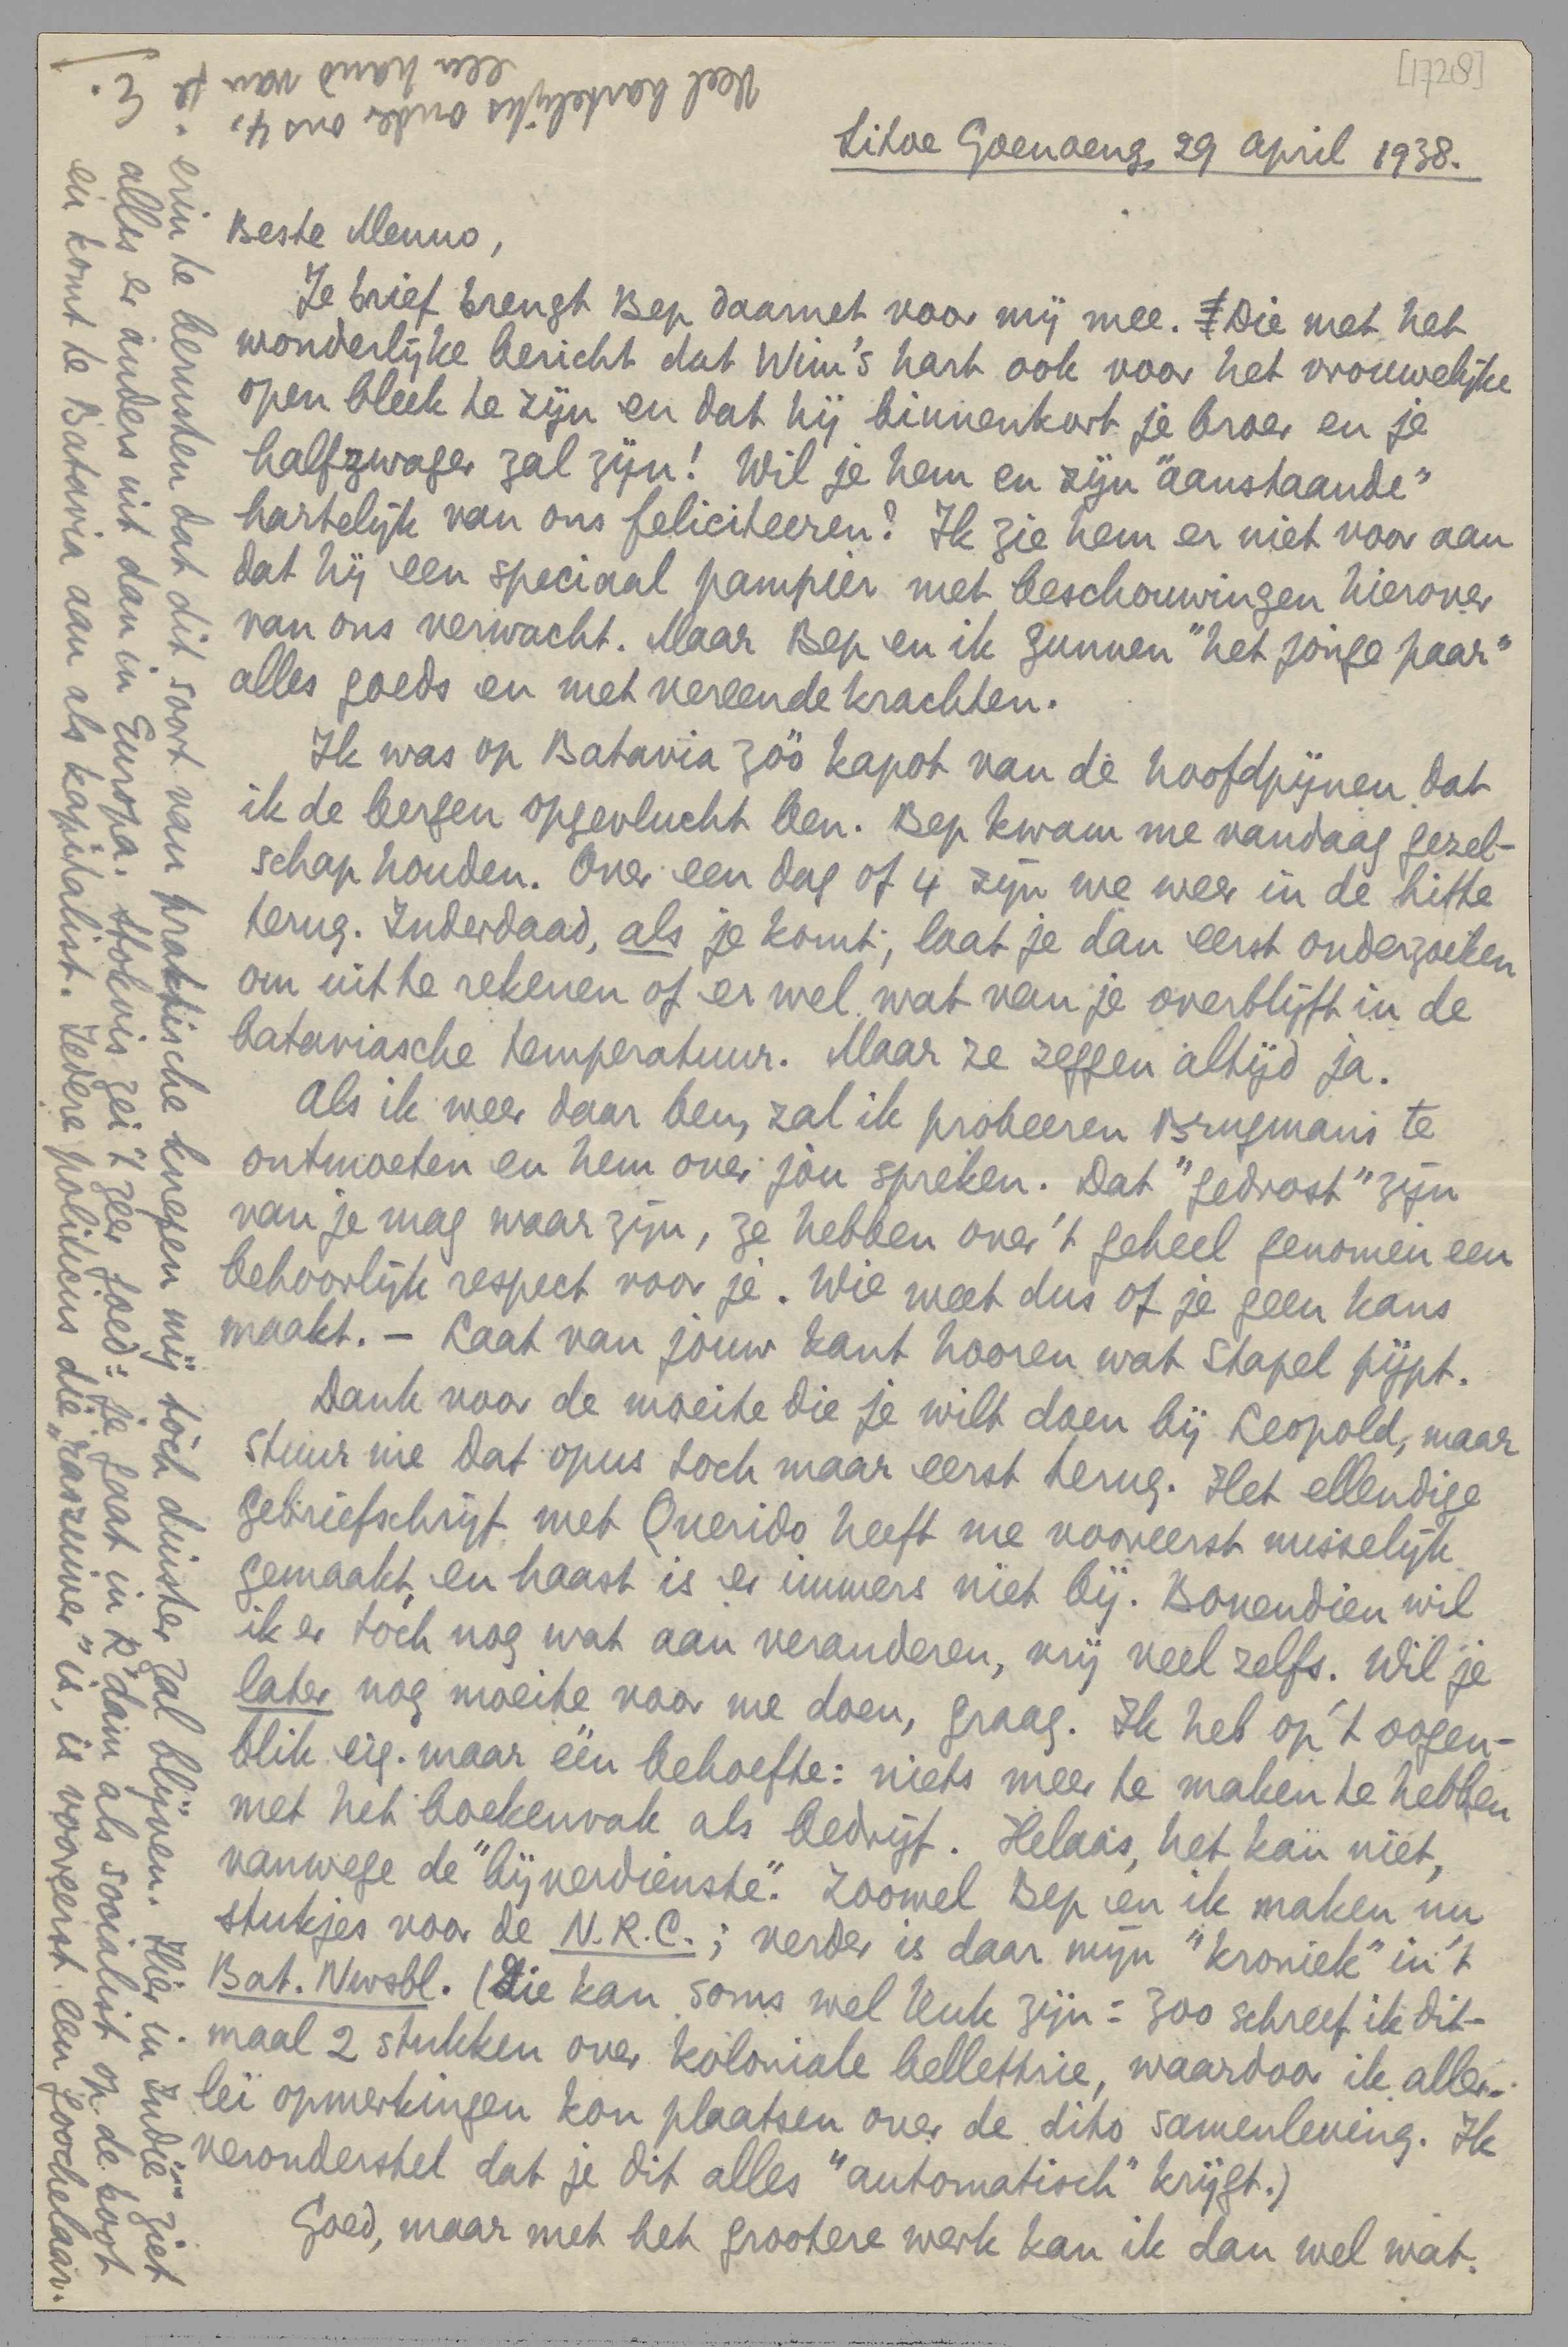 [1728]
Sitoe Goenoeng, 29 april 1938.
Beste Menno,
Je brief brengt Bep daarnet voor mij mee. Die met het
wonderlijke bericht dat Wim's hart ook voor het vrouwelijke
open bleek te zijn en dat hij binnenkort je broer en je
halfzwager zal zijn! Wil je hem en zijn "aanstaande"
hartelijk van ons feliciteeren? Ik zie hem er niet voor aan
dat hij een speciaal pampier met beschouwingen hierover
van ons verwacht. Maar Bep en ik gunnen "het jonge paar"
alles goeds en met vereende krachten.
Ik was op Batavia zóó kapot van de hoofdpijnen dat
ik de bergen opgevlucht ben. Bep kwam me vandaag gezel-
schap houden. Over een dag of 4 zijn we weer in de hitte
terug. Inderdaad, als je komt, laat je dan eerst onderzoeken
om uit te rekenen of er wel wat van je overblijft in de
bataviasche temperatuur. Maar ze zeggen altijd ja.
Als ik weer daar ben, zal ik probeeren Brugmans te
ontmoeten en hem over jou spreken. Dat "gedrost" zijn
van je mag waar zijn, ze hebben over 't geheel genomen een
behoorlijk respect voor je. Wie weet dus of je geen kans
maakt. – Laat van jouw kant hooren wat Stapel pijpt.
Dank voor de moeite die je wilt doen bij Leopold, maar
stuur me dat opus toch maar eerst terug. Het ellendige
gebriefschrijf met Querido heeft me vooreerst misselijk
gemaakt, en haast is er immers niet bij. Bovendien wil
ik er toch nog wat aan veranderen, vrij veel zelfs. Wil je
later nog moeite voor me doen, graag. Ik heb op 't oogen-
blik eig. maar één behoefte: niets meer te maken te hebben
met het boekenvak als bedrijf. Helaas, het kan niet,
vanwege de "bijverdienste". Zoowel Bep en ik maken nu
stukjes voor de N.R.C.; verder is daar mijn "kroniek" in 't
Bat. Nwsbl. (Die kan soms wel leuk zijn: zoo schreef ik dit-
maal 2 stukken over koloniale bellettrie, waardoor ik aller-
lei opmerkingen kon plaatsen over de dito samenleving. Ik
veronderstel dat je dit alles "automatisch" krijgt.)
Goed, maar met het grootere werk kan ik dan wel wat.
erin te berusten dat dit soort van praktische knepen mij tóch duister zal blijven. Hier in "Indië" ziet
alles er anders uit dan in Europa. Stokvis zei 't zeer goed: je gaat in R'dam als socialist op de boot
en komt te Batavia aan als kapitalist. Iedere politicus die "raszuiver" is, is vooreerst een goochelaar.
Veel hartelijks onder ons 4,
een hand van je
E.